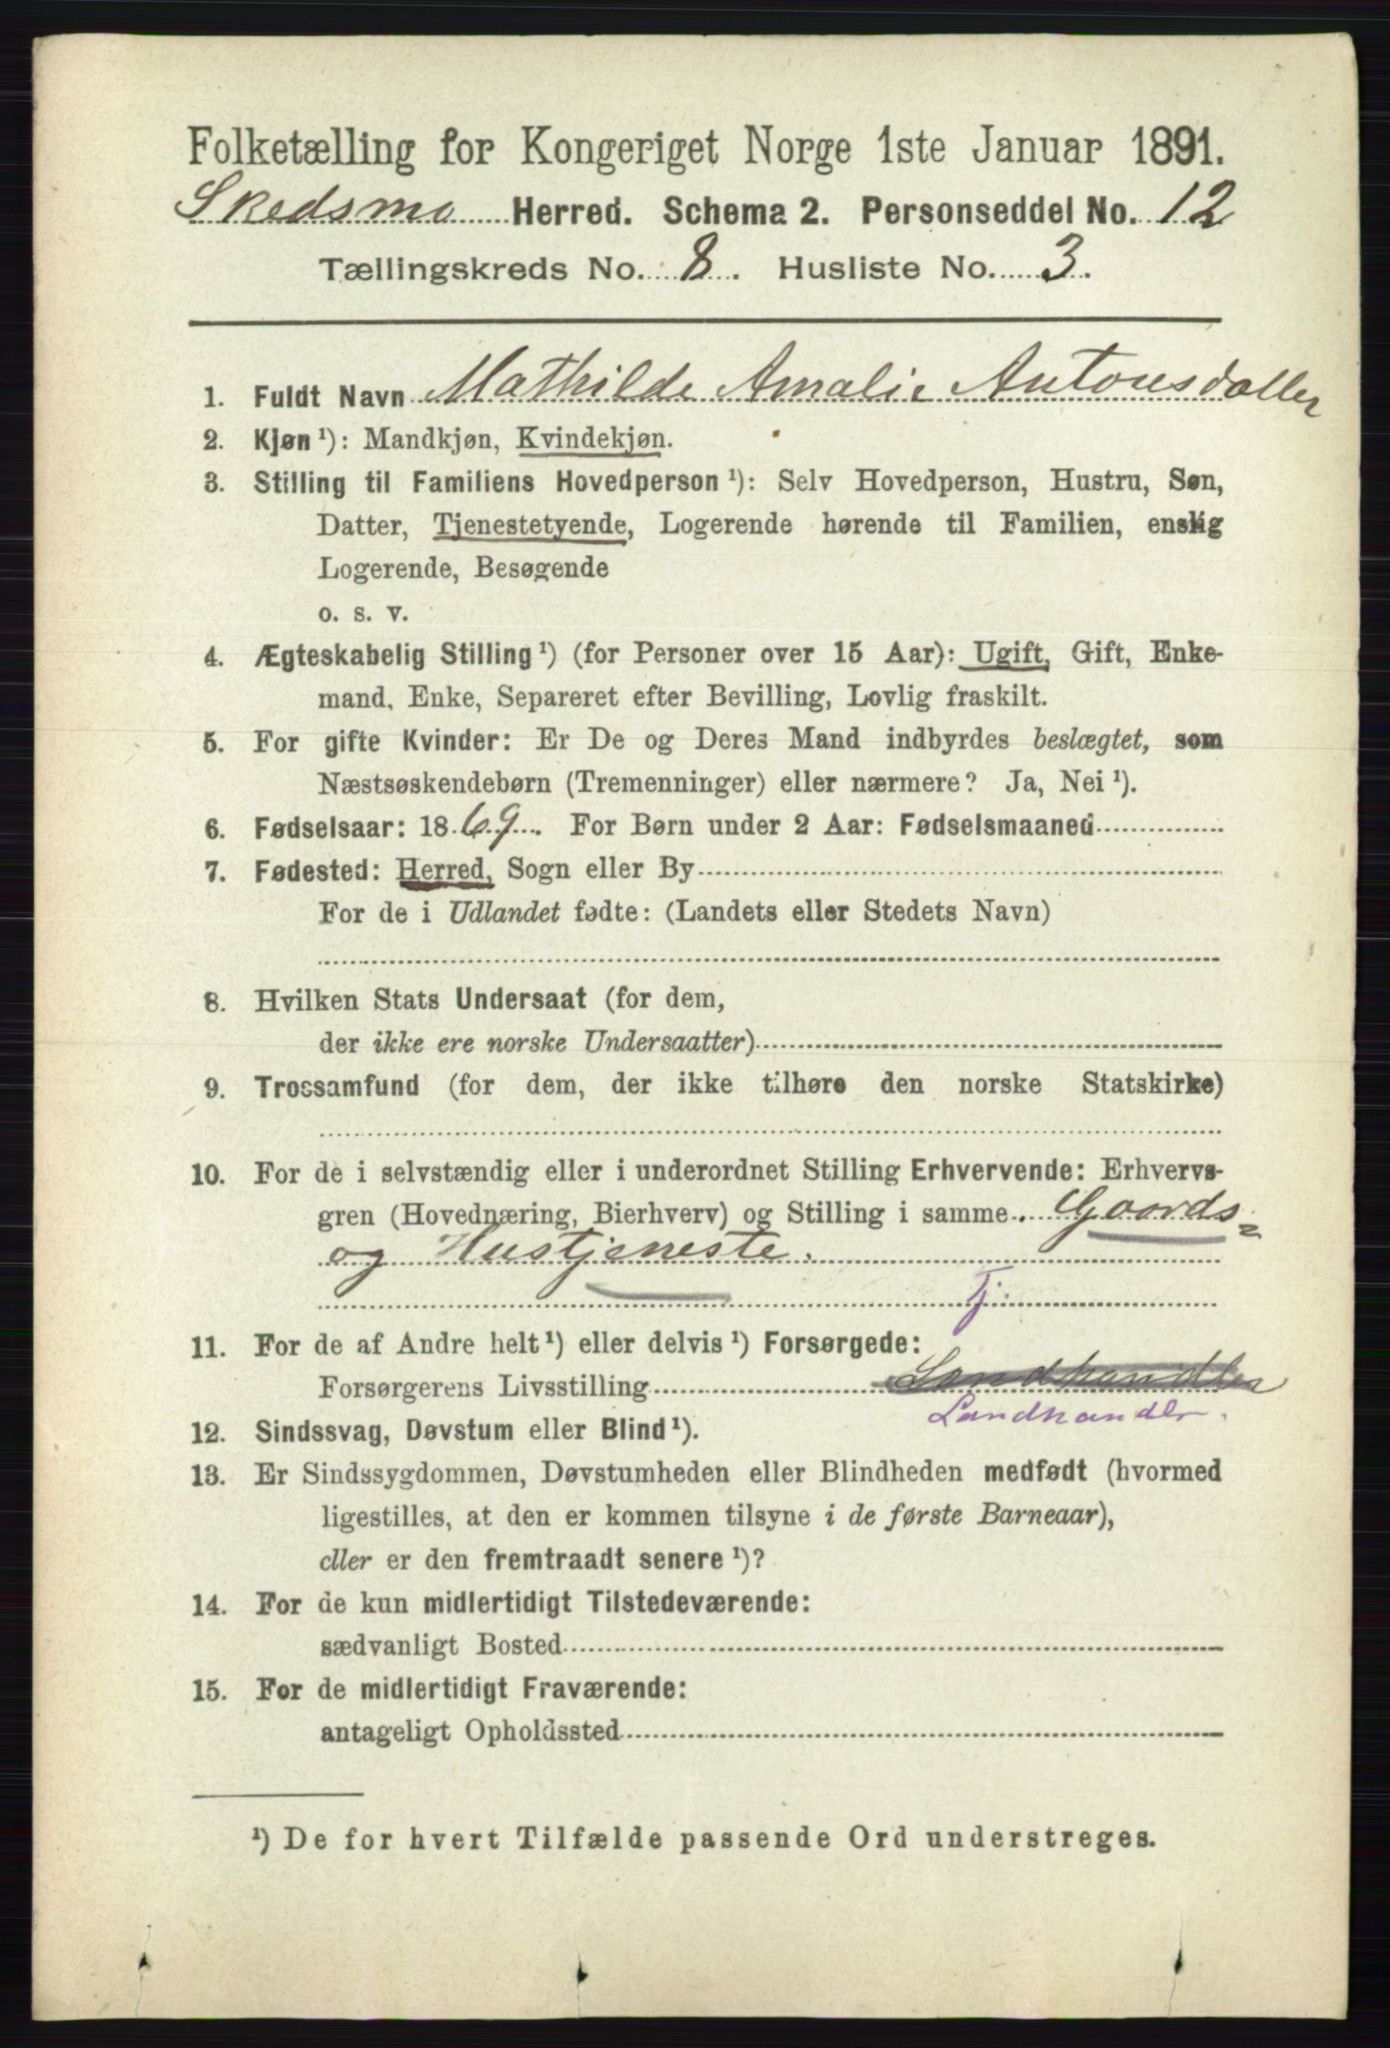 Folketælling for Kongeriget Norge 1ste Januar 1891.
Skedsmo Herred. Schema 2. Personseddel No. 12
Tællingskreds No. 8. Husliste No. 3.
1. Fuldt Navn Mathilde Amalie Antonsdatter
2. Kjøn ¹): Mandkjøn, Kvindekjøn.
3. Stilling til Familiens Hovedperson ¹): Selv Hovedperson, Hustru, Søn,
Datter, Tjenestetyende, Logerende hørende til Familien, enslig
Logerende, Besøgende
o. s. v.
4. Ægteskabelig Stilling ¹) (for Personer over 15 Aar): Ugift, Gift, Enke-
mand, Enke, Separeret efter Bevilling, Lovlig fraskilt.
5. For gifte Kvinder: Er De og Deres Mand indbyrdes beslægtet, som
Næstsøskendebørn (Tremenninger) eller nærmere? Ja, Nei ¹).
6. Fødselsaar: 1869. For Børn under 2 Aar: Fødselsmaaned
7. Fødested: Herred, Sogn eller By
For de i Udlandet fødte: (Landets eller Stedets Navn)
8. Hvilken Stats Undersaat (for dem,
der ikke ere norske Undersaatter)
9. Trossamfund (for dem, der ikke tilhøre den norske Statskirke)
10. For de i selvstændig eller i underordnet Stilling Erhvervende: Erhvervs-
gren (Hovednæring, Bierhverv) og Stilling i samme. Gaards=
og Hustjeneste.
Tj
11. For de af Andre helt ¹) eller delvis ¹) Forsørgede:
Forsørgerens Livsstilling Landhandler
Landhandler.
12. Sindssvag, Døvstum eller Blind ¹).
13. Er Sindssygdommen, Døvstumheden eller Blindheden medfødt (hvormed
ligestilles, at den er kommen tilsyne i de første Barneaar),
eller er den fremtraadt senere ¹)?
14. For de kun midlertidigt Tilstedeværende:
sædvanligt Bosted
15. For de midlertidigt Fraværende:
antageligt Opholdssted
¹) De for hvert Tilfælde passende Ord understreges.